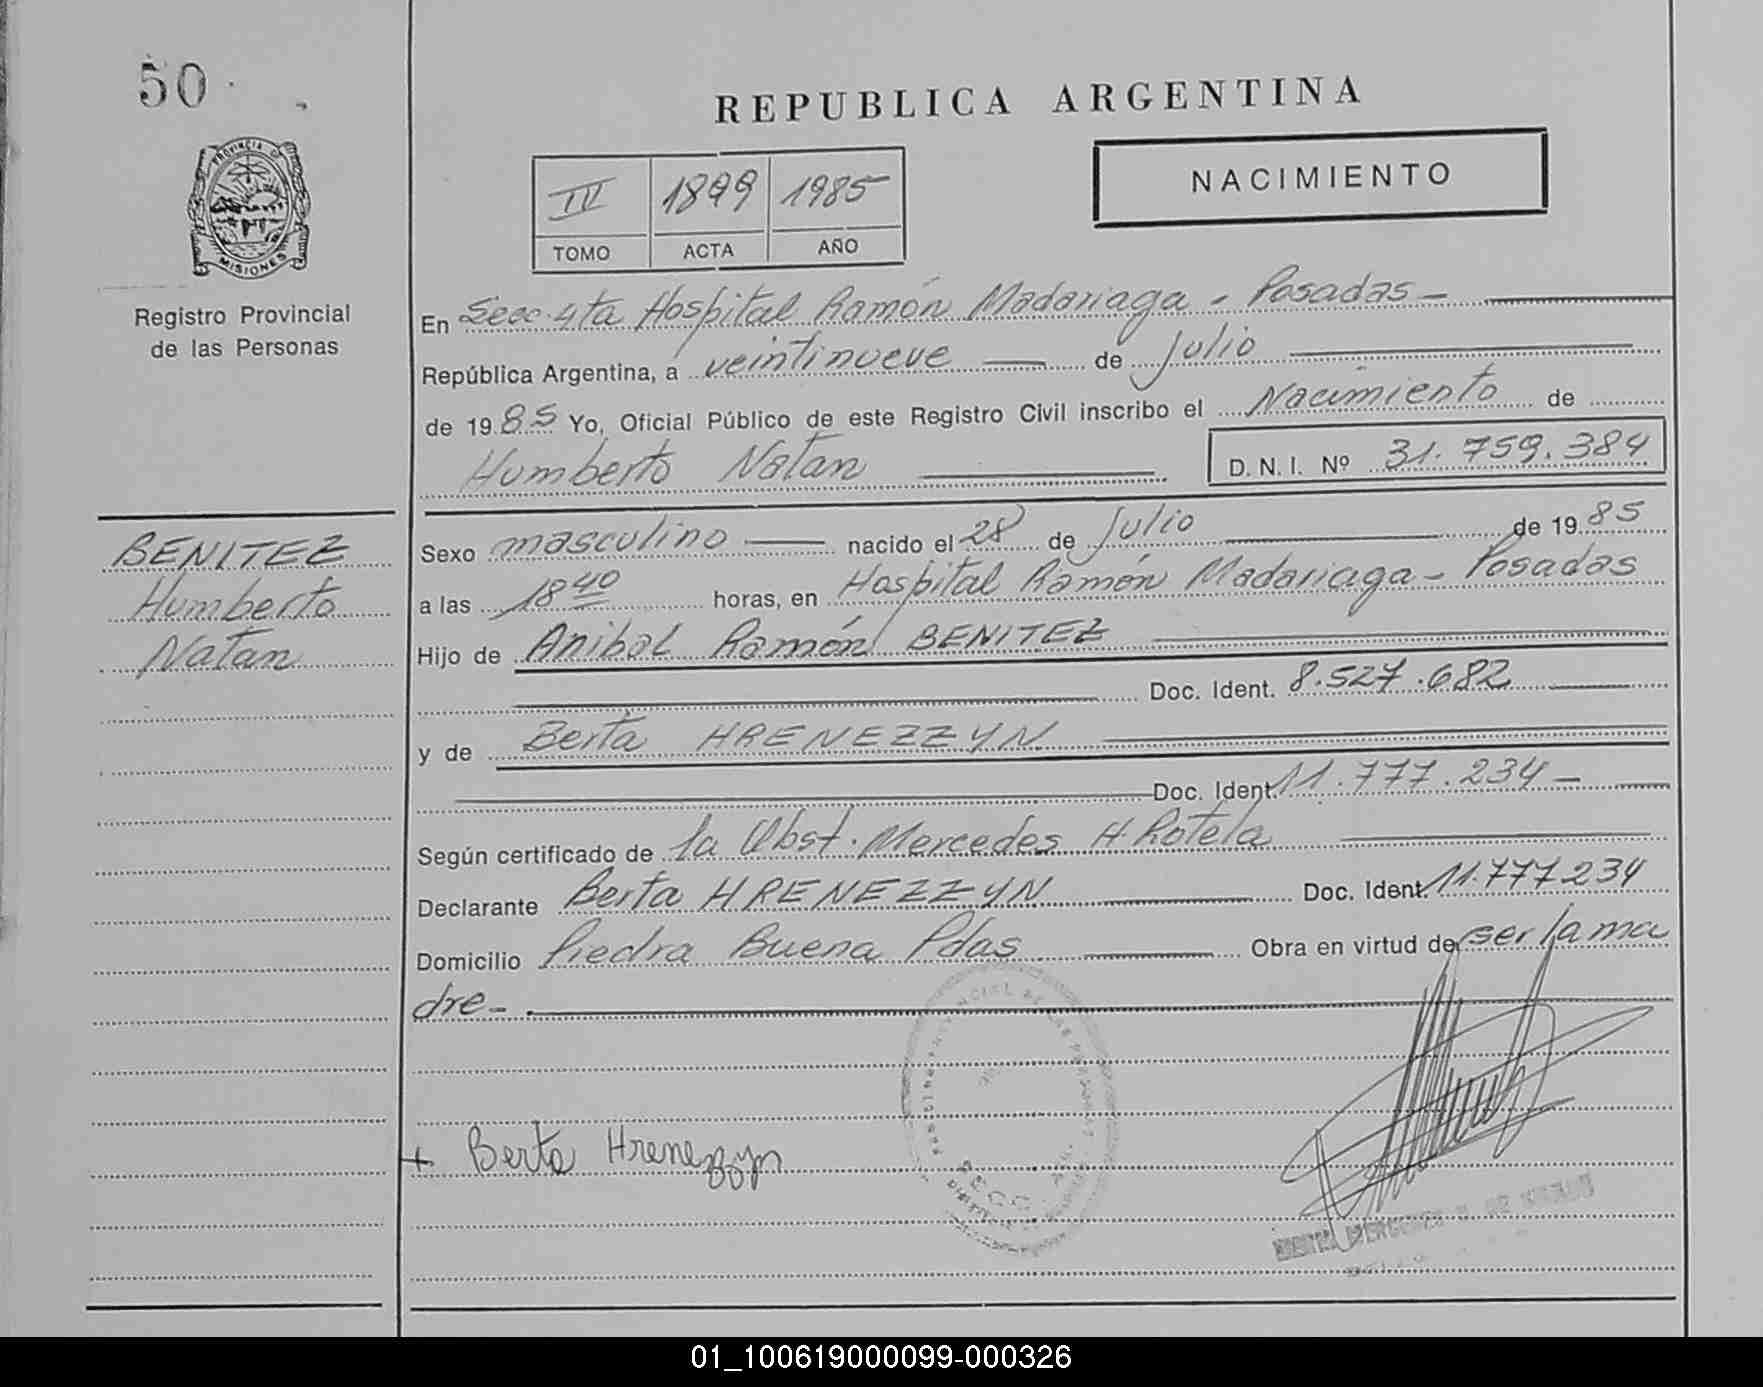 50
REPUBLICA ARGENTINA
NACIMIENTO
III 1899 1985
TOMO ACTA AÑO
PROVINCIA DE
MISIONES
Registro Provincial
de las Personas
En Secc. 4ta Hospital Ramón Madariaga - Posadas -
República Argentina, a veintinueve de Julio
de 1985 Yo, Oficial Público de este Registro Civil inscribo el Nacimiento de
Humberto Natan D.N.I. Nº 31.759.384
BENITEZ
Humberto
Natan
Sexo masculino nacido el 28 de Julio de 1985
a las 18 40 horas, en Hospital Ramón Madariaga - Posadas
Hijo de Anibal Ramón BENITEZ
Doc. Ident. 8.527.682
y de Berta HRENEZZYN
Doc. Ident. 11.777.234 -
Según certificado de la Obst. Mercedes H. Rotela
Declarante Berta HRENEZZYN Doc. Ident. 11.777.234
Domicilio Piedra Buena Pdas Obra en virtud de ser la ma
dre -
+ Berta Hrenezzyn
01_100619000099-000326